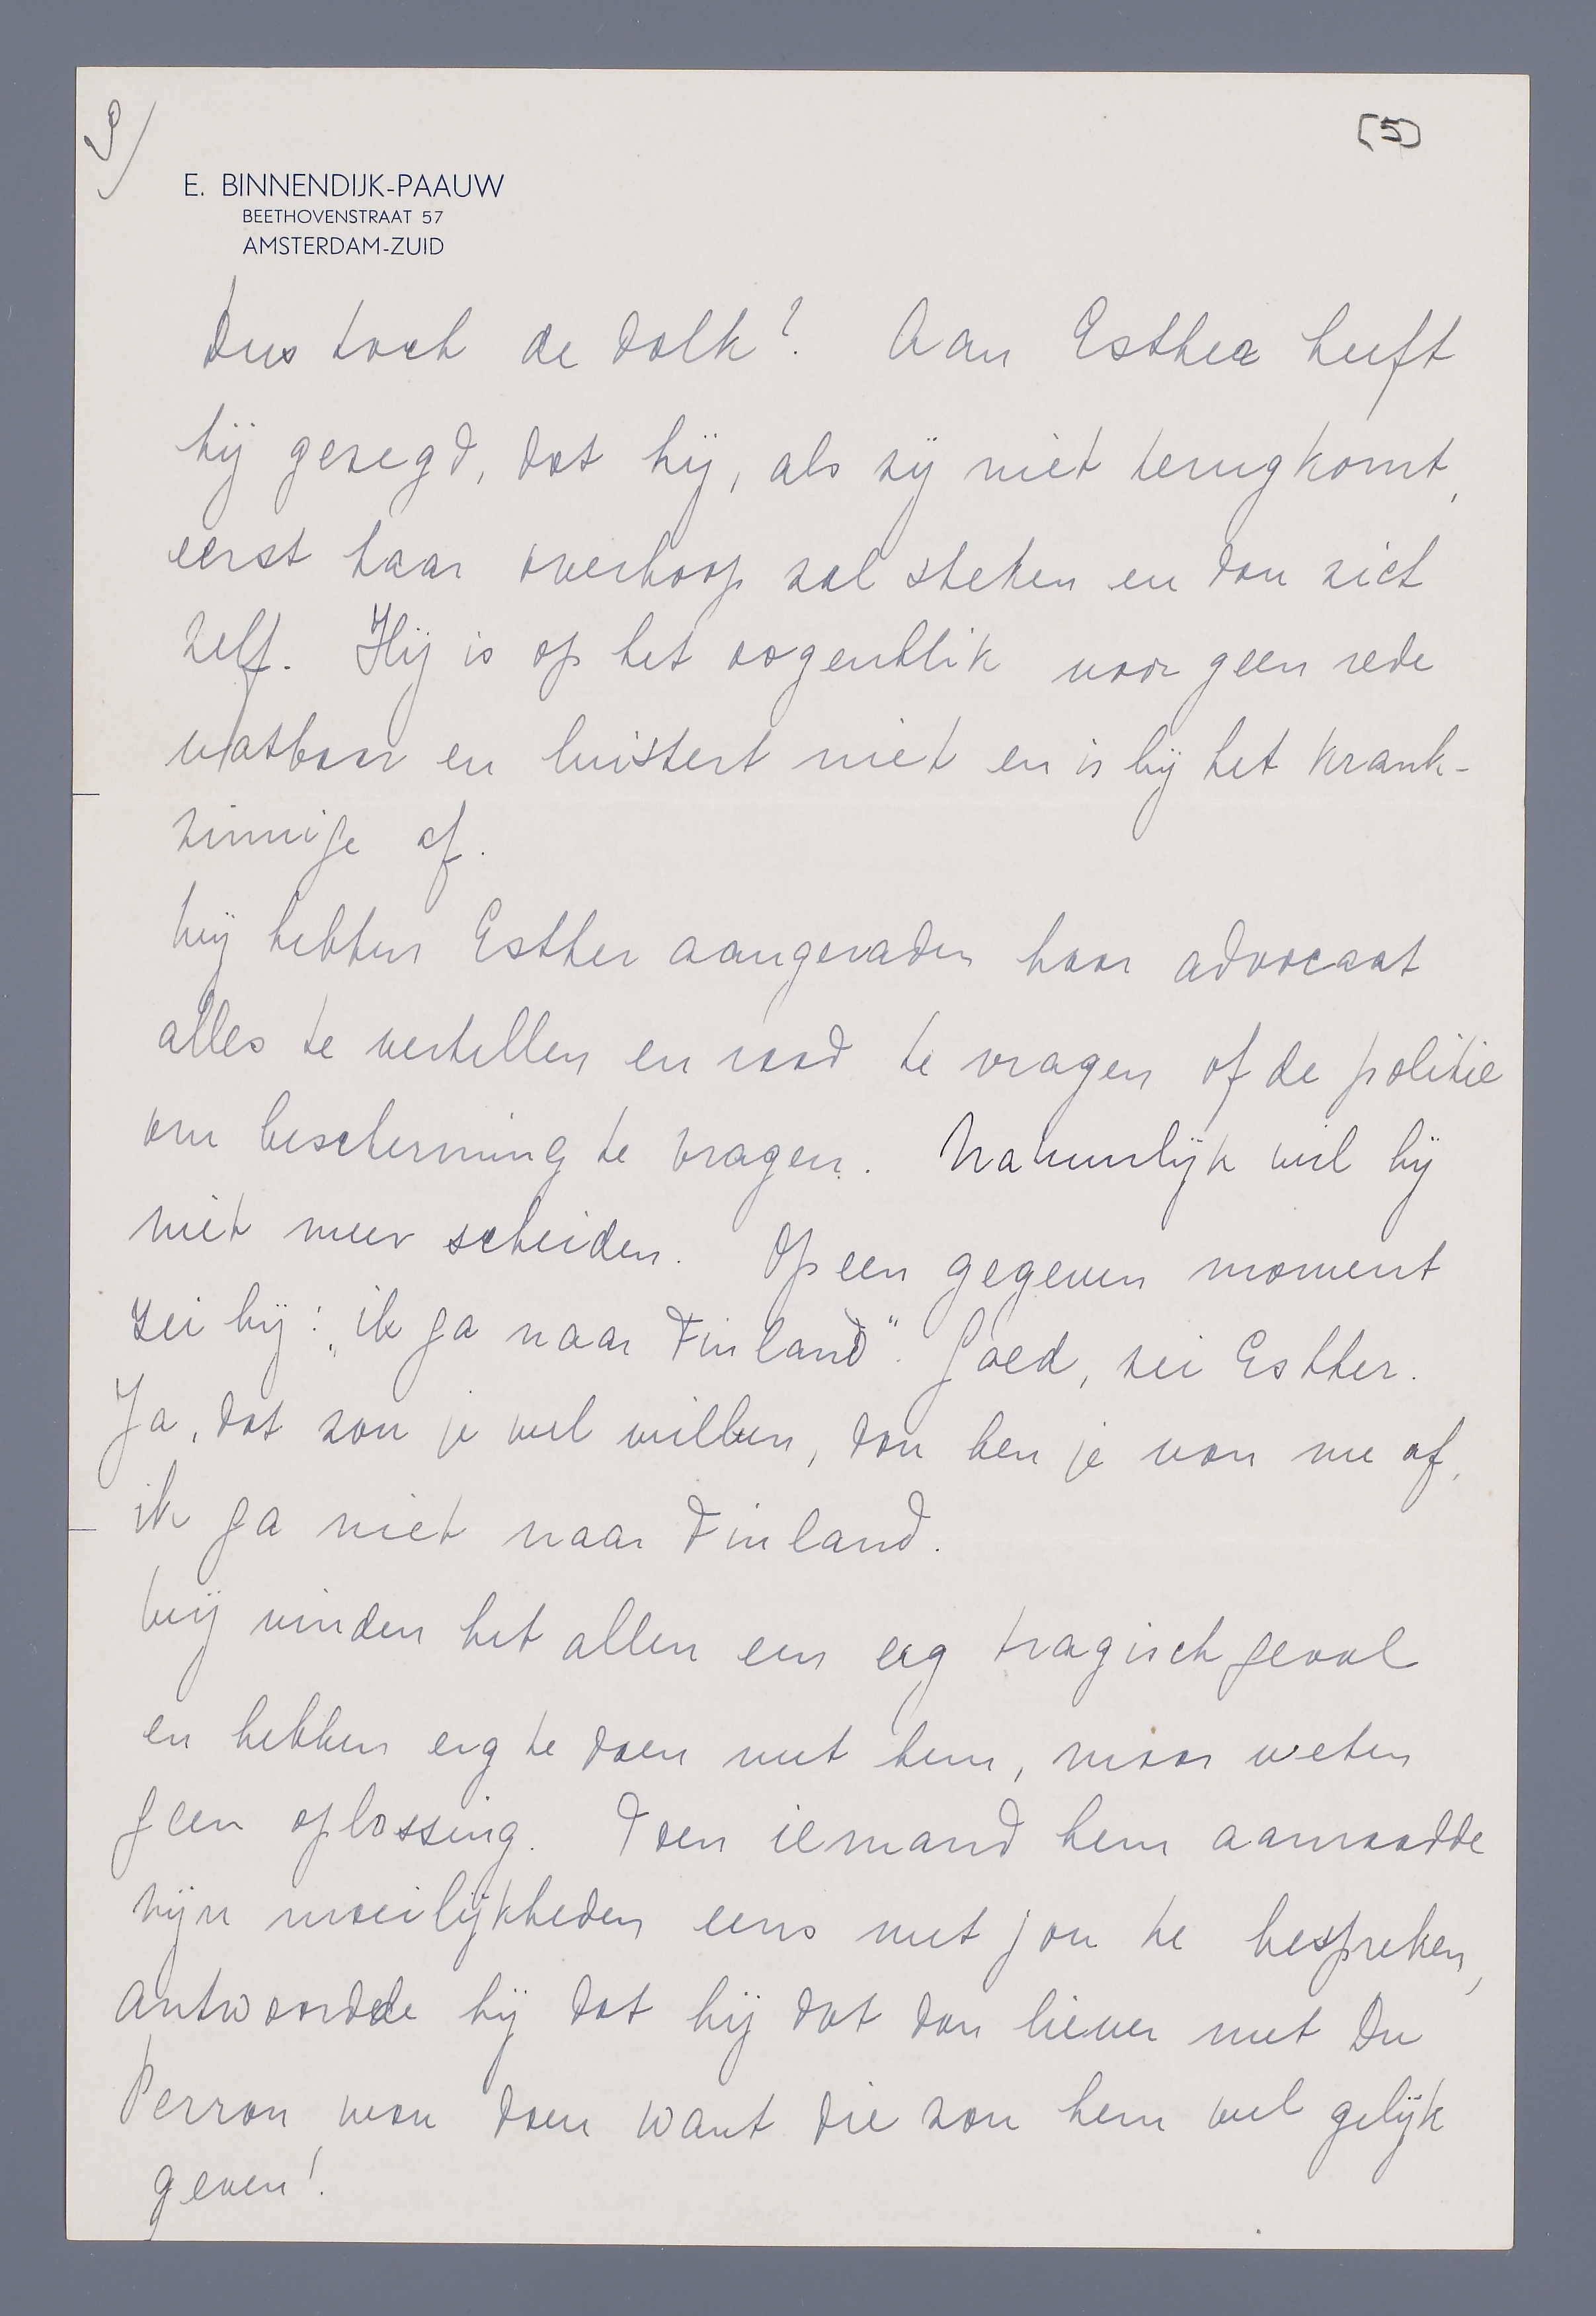 9/
(5)
E. BINNENDIJK-PAAUW
BEETHOVENSTRAAT 57
AMSTERDAM-ZUID
Dus toch de dolk? Aan Esther heeft
hij gezegd, dat hij, als zij niet terugkomt,
eerst haar overhoop zal steken en dan zich
zelf. Hij is op het oogenblik voor geen rede
vatbaar en luistert niet en is bij het krank-
zinnige af.
Wij hebben Esther aangeraden haar advocaat
alles te vertellen en raad te vragen of de politie
om bescherming te vragen. Natuurlijk wil hij
niet meer scheiden. Op een gegeven moment
zei hij: „ik ga naar Finland". Goed, zei Esther.
Ja, dat zou je wel willen, dan ben je van me af,
ik ga niet naar Finland.
Wij vinden het allen een erg tragisch geval
en hebben erg te doen met hem, maar weten
geen oplossing. Toen iemand hem aanraadde
zijn moeilijkheden eens met jou te bespreken,
antwoordde hij dat hij dat dan liever met Du
Perron wou doen want die zou hem wel gelijk
geven!